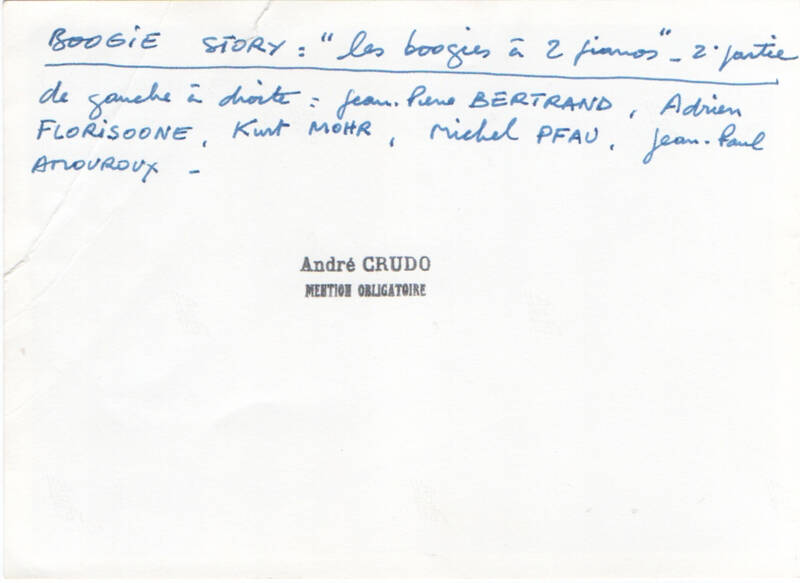 BOOGIE STORY : "les boogies à 2 pianos" - 2° partie
de gauche à droite : Jean-Pierre BERTRAND, Adrien
FLORISOONE, Kurt MOHR, Michel PFAU, Jean-Paul
AMOUROUX -
André CRUDO
MENTION OBLIGATOIRE